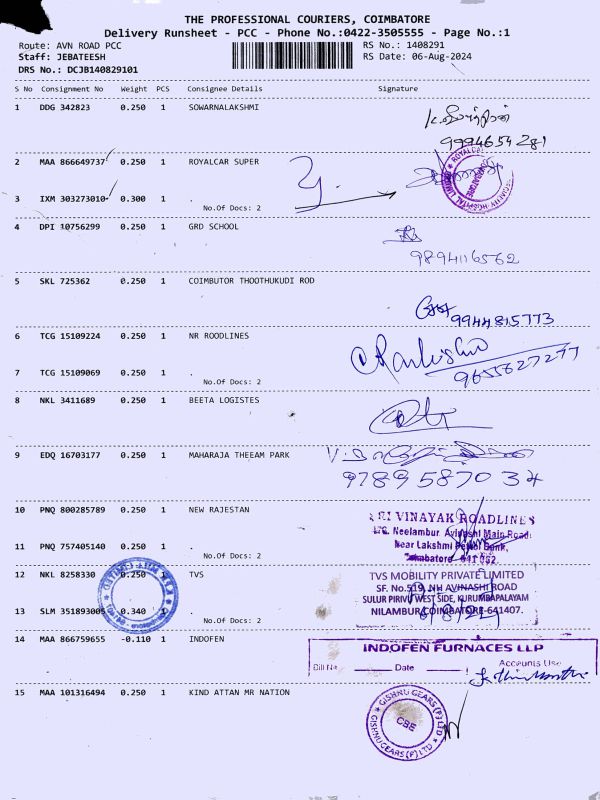 THE PROFESSIONAL COURIERS, COIMBATORE
Delivery Runsheet - PCC - Phone No.:0422-3505555 - Page No.:1
Route: AVN ROAD PCC
RS No.: 1408291
Staff: JEBATEESH
RS Date: 06-Aug-2024
DRS No.: DCJB140829101
S No Consignment No Weight PCS Consignee Details Signature
1 DDG 342823 0.250 1 SOWARNALAKSHMI
9994654281
2 MAA 866649737 0.250 1 ROYALCAR SUPER
3 IXM 303273010 0.300 1 .
No.Of Docs: 2
4 DPI 10756299 0.250 1 GRD SCHOOL
9894116562
5 SKL 725362 0.250 1 COIMBUTOR THOOTHUKUDI ROD
9944815773
6 TCG 15109224 0.250 1 NR ROODLINES
7 TCG 15109069 0.250 1 .
9655627277
No.Of Docs: 2
8 NKL 3411689 0.250 1 BEETA LOGISTES
9 EDQ 16703177 0.250 1 MAHARAJA THEEAM PARK
9789587034
10 PNQ 800285789 0.250 1 NEW RAJESTAN
SRI VINAYAK ROADLINES
Neelambur, Avinashi Main Road
11 PNQ 757405140 0.250 1 .
Near Lakshmi Bank,
No.Of Docs: 2
Coimbatore 641 062
12 NKL 8258330 0.250 1 TVS
TVS MOBILITY PRIVATE LIMITED
SF. No.519, NH AVINASHI ROAD
SULUR PIRIVU WEST SIDE, KURUMBAPALAYAM
13 SLM 351893005 0.340 1 .
NILAMBUR, COIMBATORE-641407.
No.Of Docs: 2
14 MAA 866759655 -0.110 1 INDOFEN
INDOFEN FURNACES LLP
Bill No Date Accounts Use
15 MAA 101316494 0.250 1 KIND ATTAN MR NATION
GISHNU GEARS (P) LTD
CBE
GISHNU GEARS (P) LTD